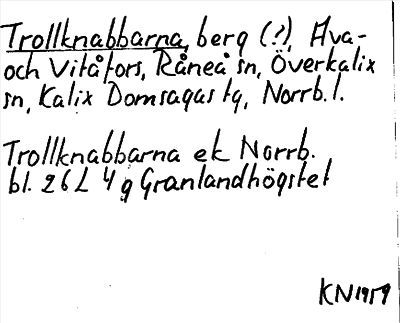 Trollknabbarna, berg (?), Alva-
och Vitåfors, Råneå sn, Överkalix
sn, Kalix Domsagas tg, Norrb. l.
Trollknabbarna ek Norrb.
bl. 26L 4g Granlandhögstet
KN 1959